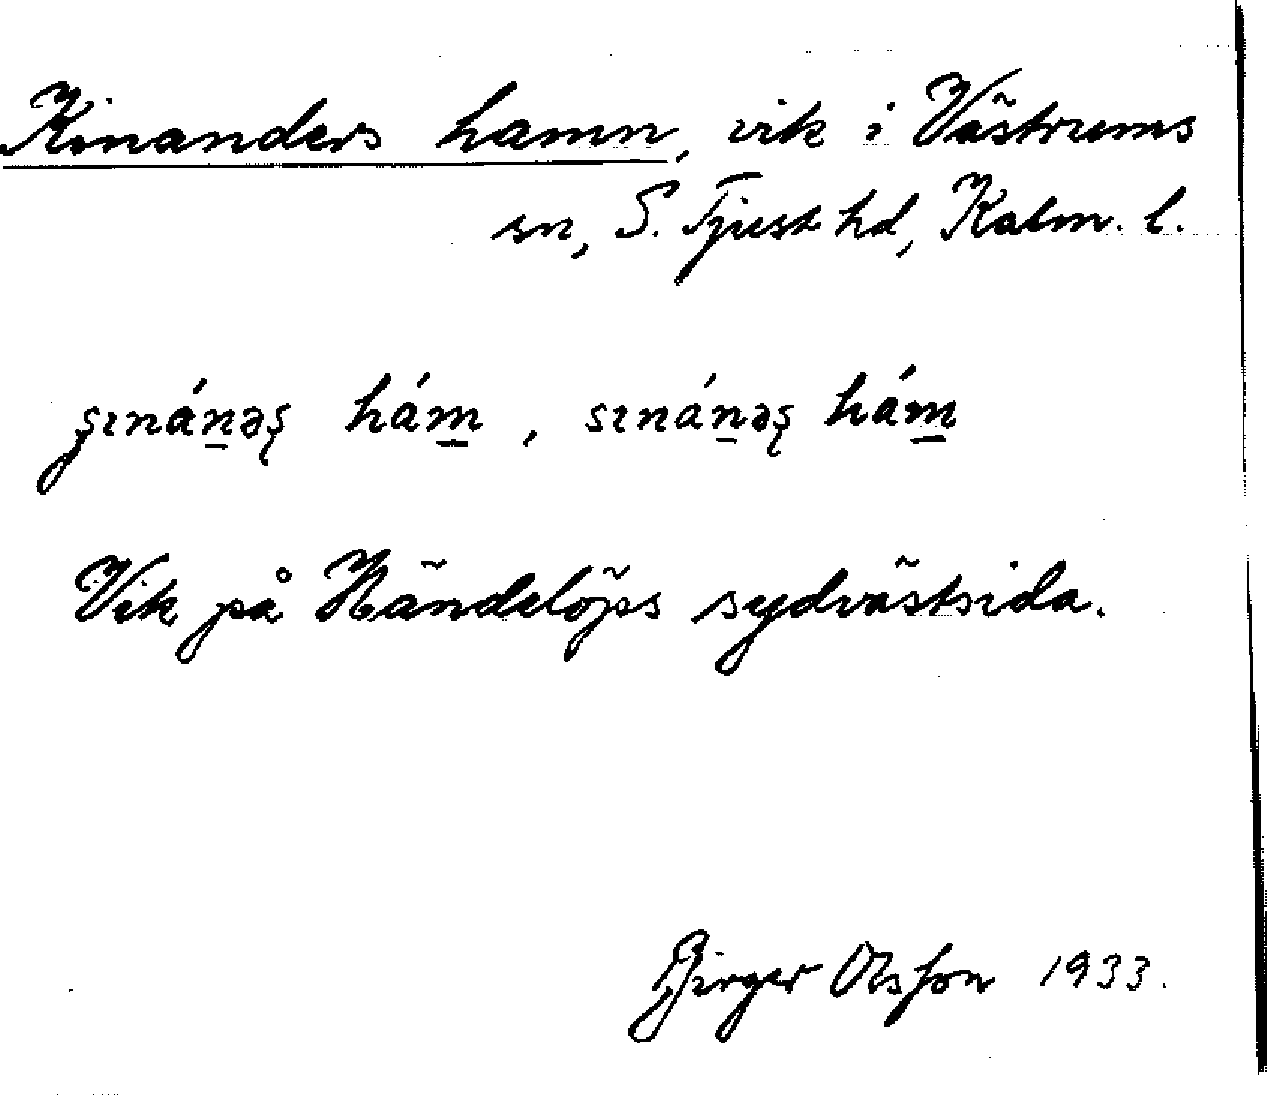 Kinanders hamn, vik i Västrums
sn, S. Tjust hd, Kalm. l.
ʂınánəʂ hám, sınánəʂ hám
Vik på Händelöps sydvästsida.
Birger Olsson 1933.